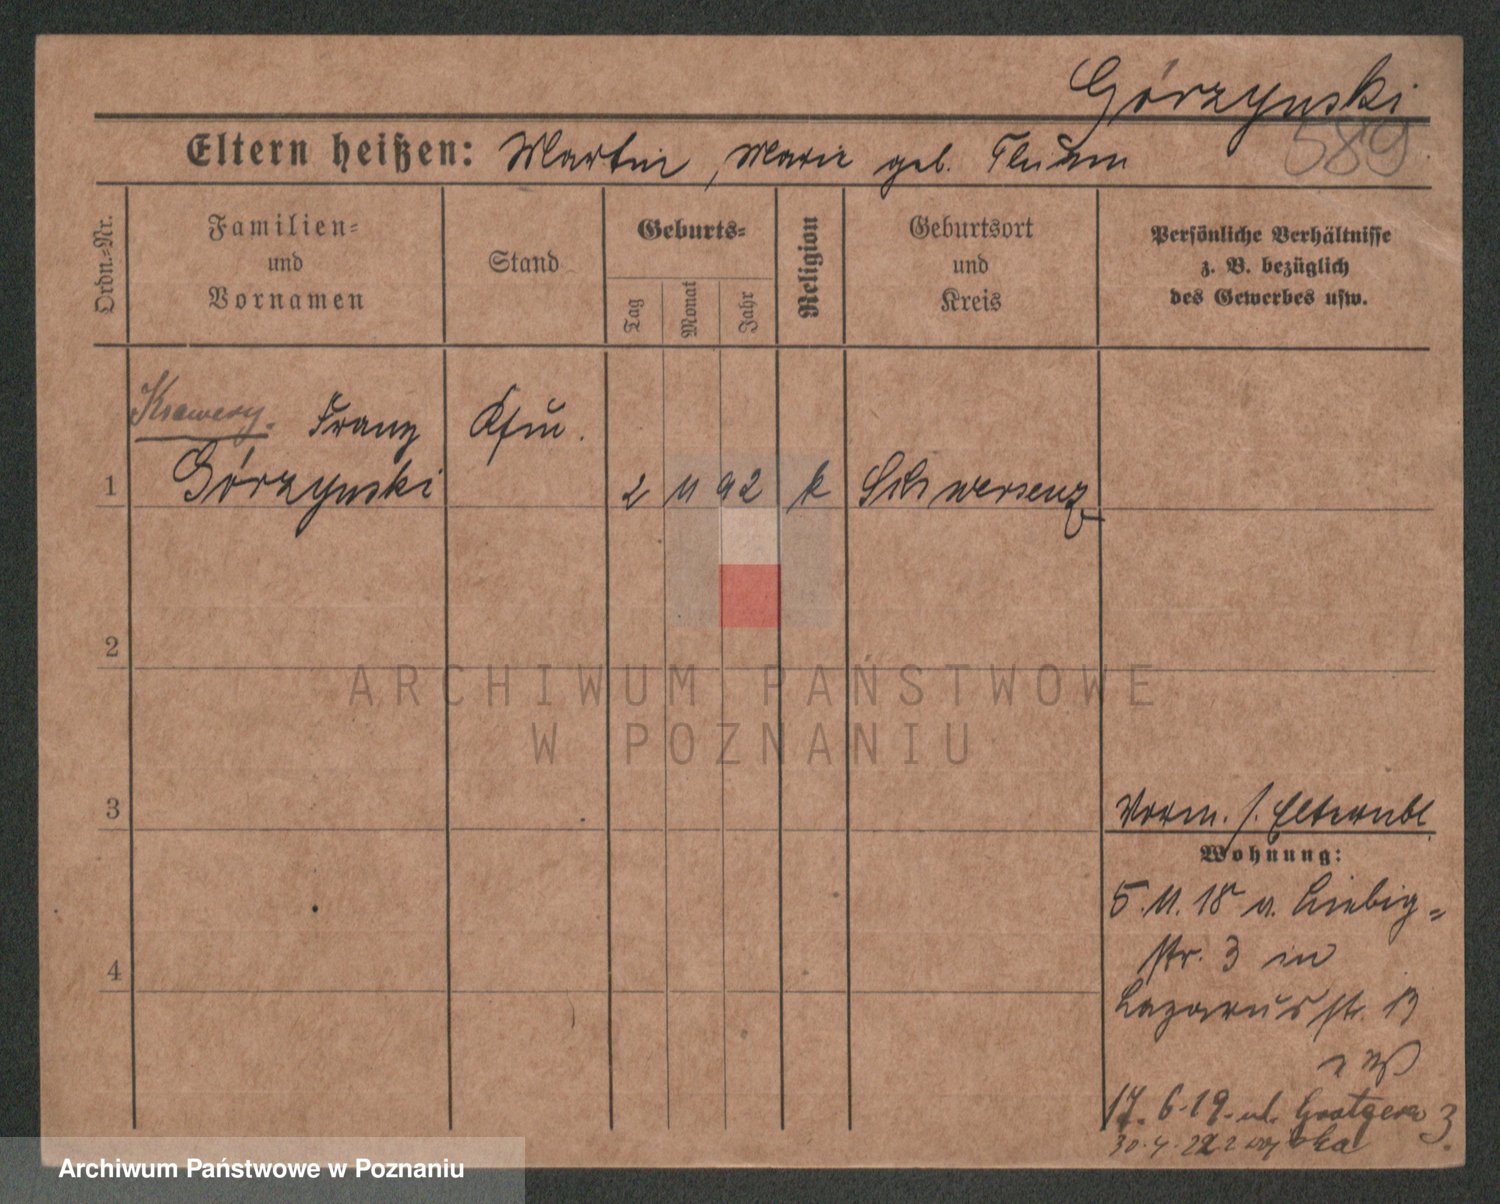 Górzynski
589
Eltern heißen: Martin, Marie geb.
Ordn.-Nr.
Familien-
und
Vornamen
Stand
Geburts-
Tag
Monat
Jahr
Religion
Geburtsort
und
Kreis
Persönliche Verhältnisse
z. B. bezüglich
des Gewerbes usw.
Franz Kfm.
1 Górzynski 2 11 92 k Schwersenz
2
ARCHIWUM PAŃSTWOWE
W POZNANIU
3
Vorm. s. Elternbl.
Wohnung:
5. 11. 18 v. Liebig-
str. 3 in
Lazarusstr. 13
4
17. 6. 19. ul. Grotgera 3.
30. 4. 22 z wojska
Archiwum Państwowe w Poznaniu